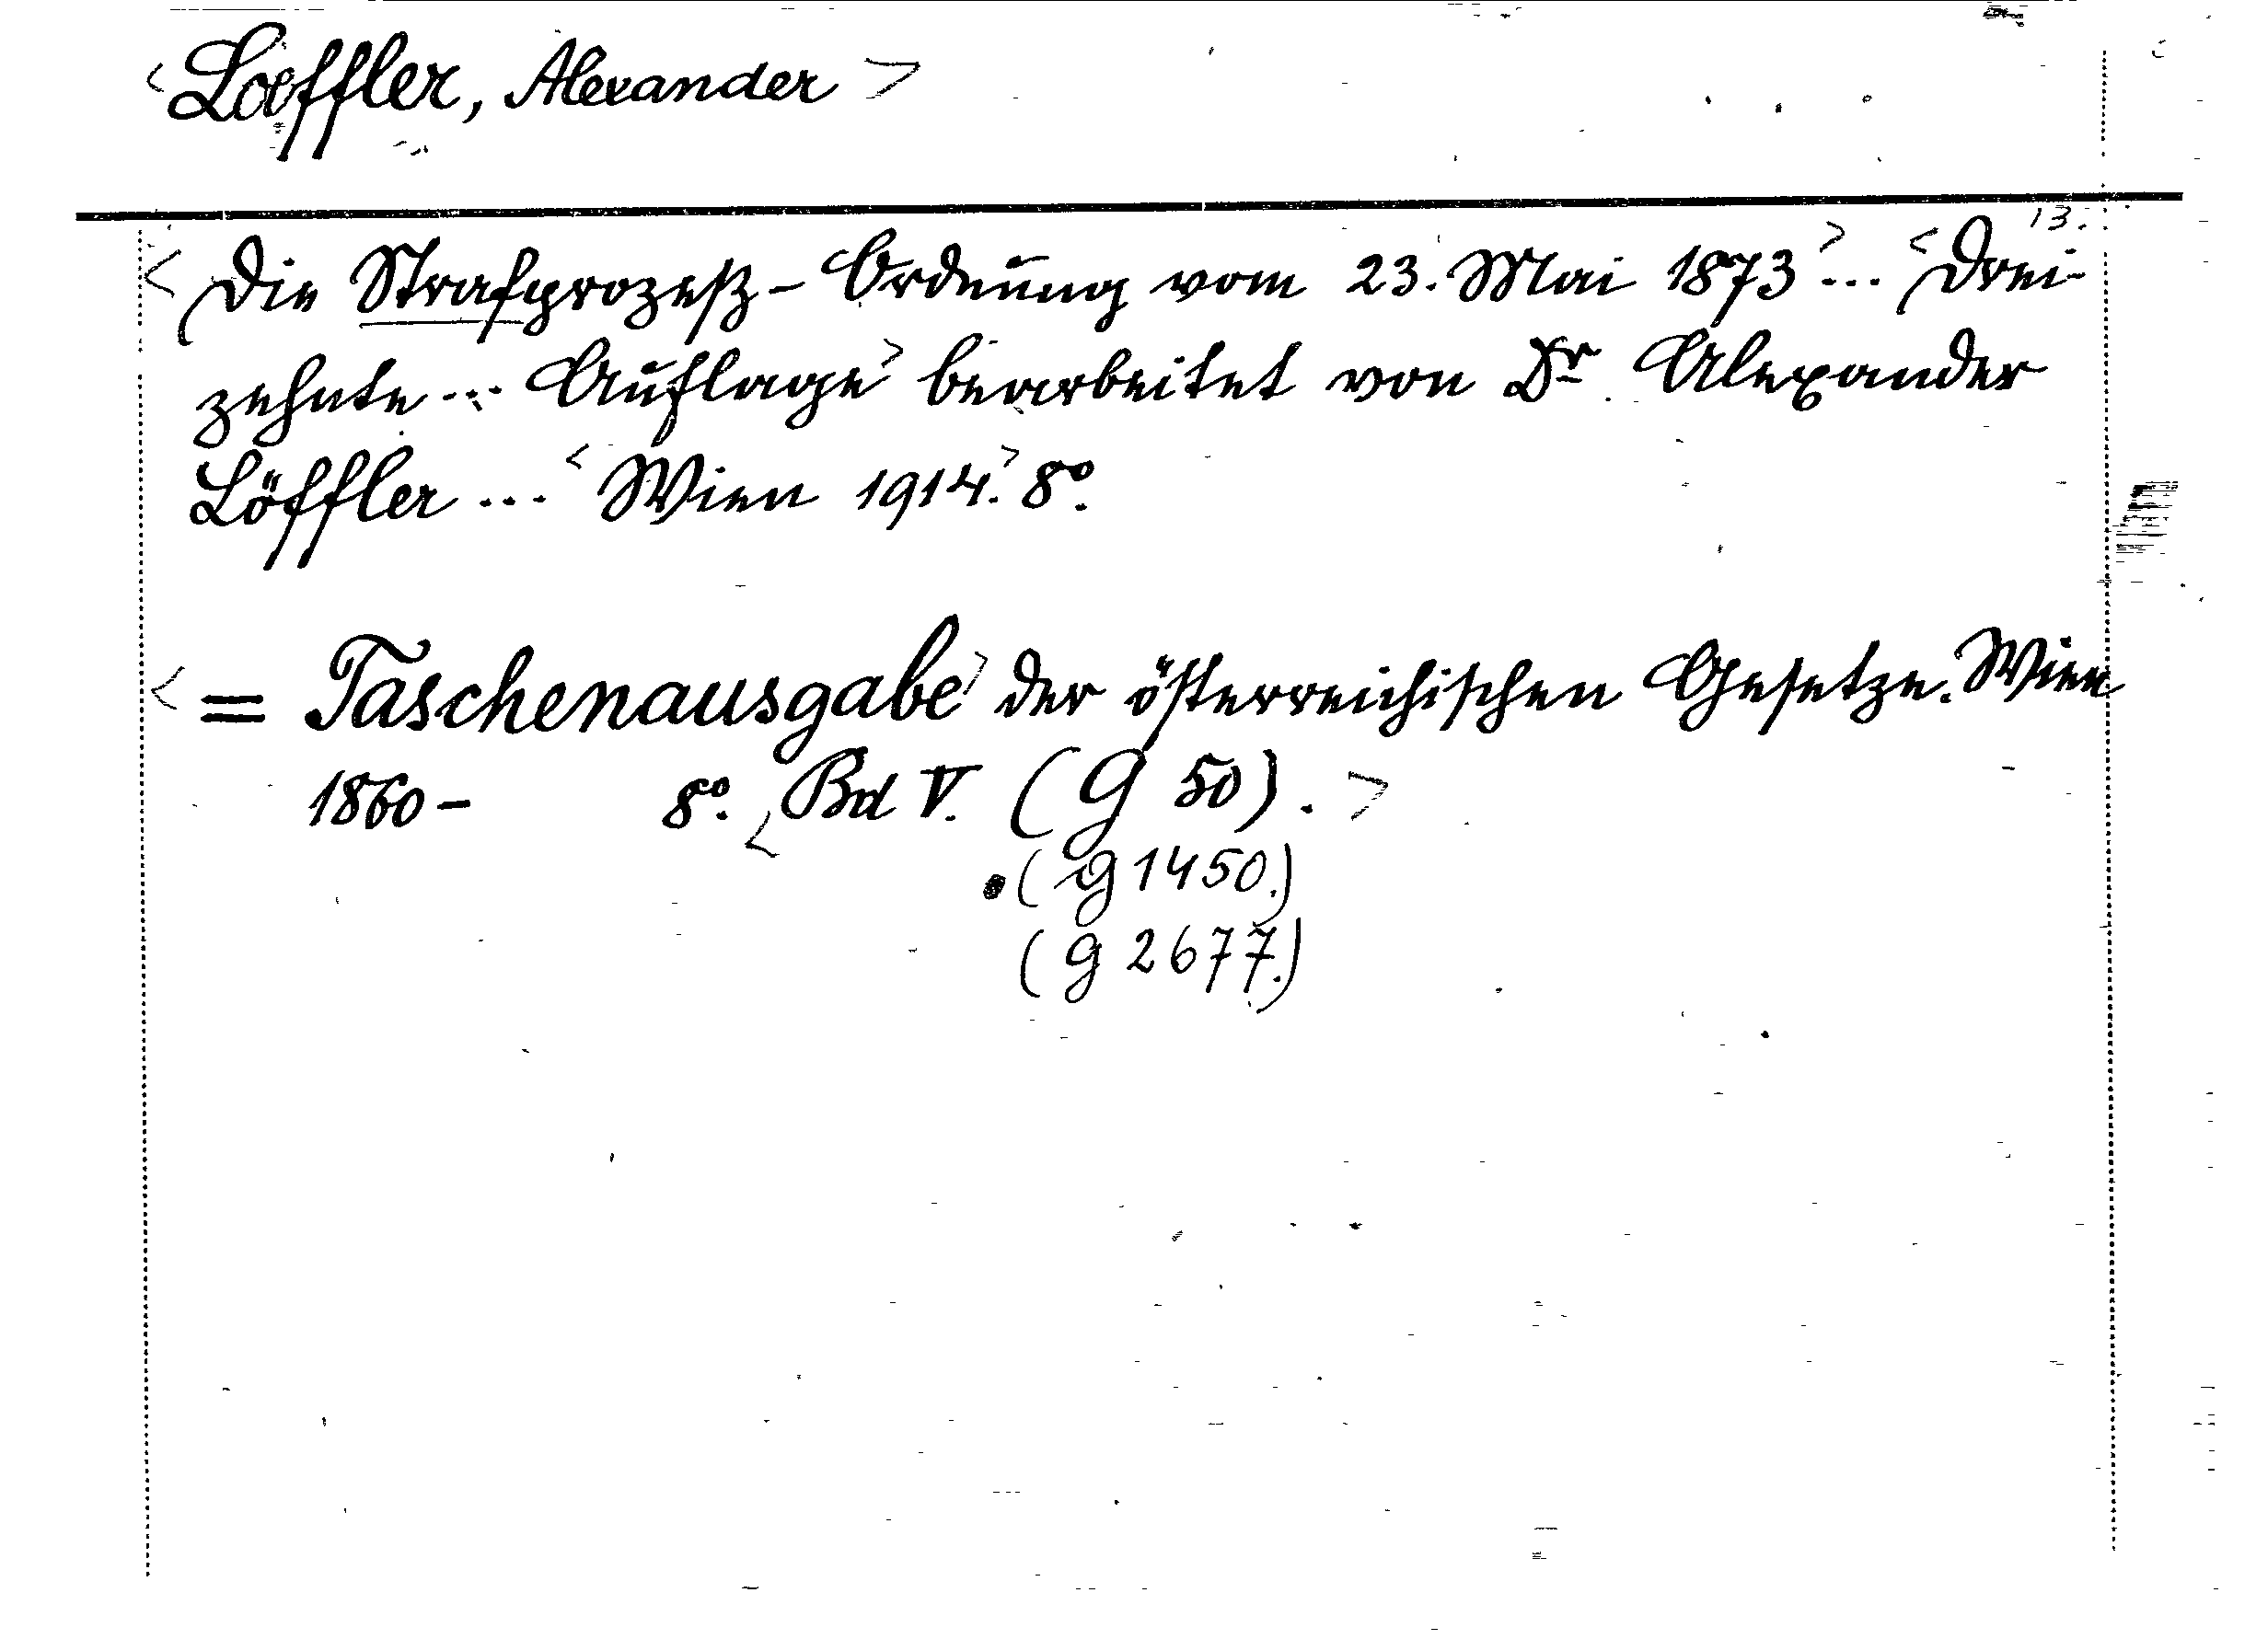 <Loeffler, Alexander>
13.
<Die Strafprozeß-Ordnung vom 23. Mai 1873> ... <Drei-
zehnte ... Auflage> bearbeitet von Dr. Alexander
Löffler ... <Wien 1914.> 8º.
<= Taschenausgabe> der österreichischen Gesetze. Wien
1860- 8º. <Bd V. (G 50).>
(G 1450.)
(G 2677.)